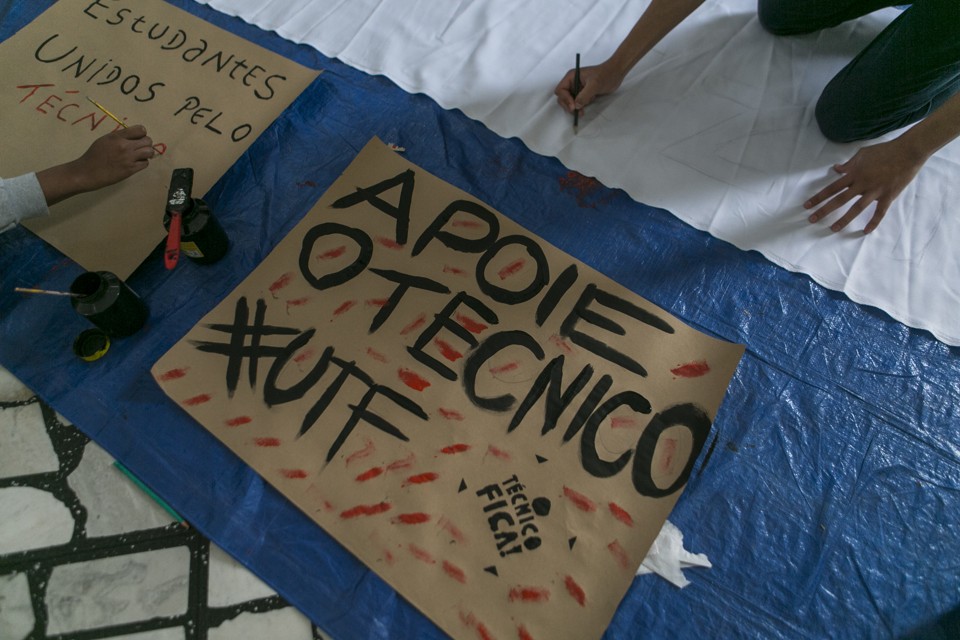 ESTUDANTES
UNIDOS PELO
TÉCNICO
APOIE
O TECNICO
#UTF
TÉCNICO
FICA!